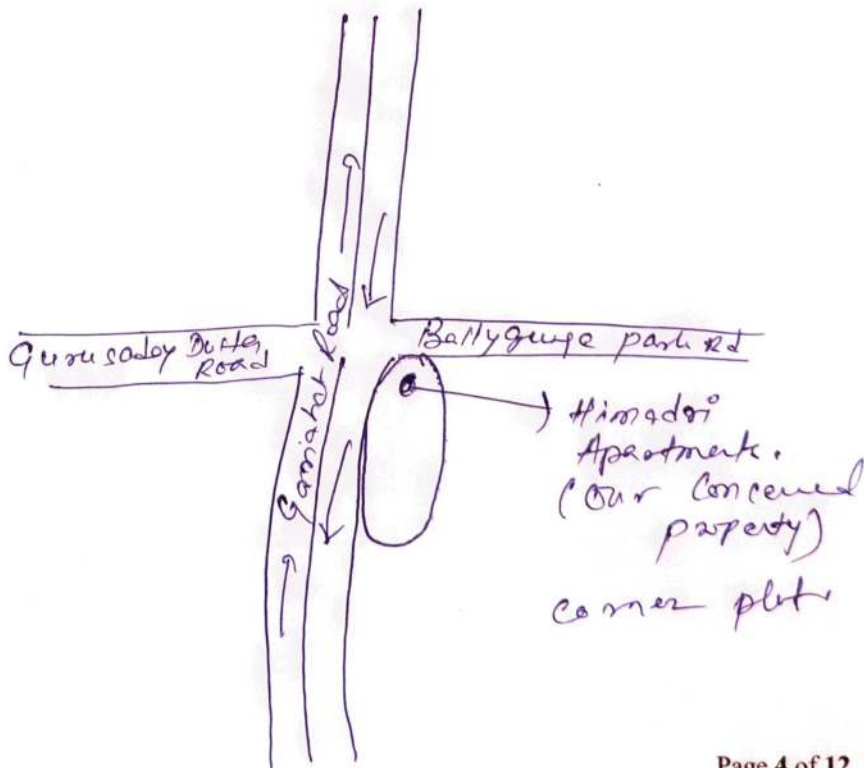 Gurusaday Dutta
Road
Gariahat Road
Ballygunge park Rd
Himadri
Apartment.
(Our Concerned
property)
corner plot.
Page 4 of 12